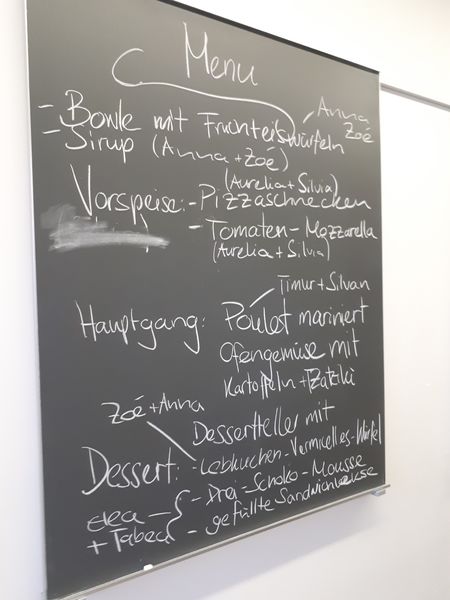 Menu
- Bowle mit Fruchteiswürfeln
Anna
Zoé
- Sirup (Anna + Zoé)
(Aurelia + Silvia)
Vorspeise: - Pizzaschnecken
- Tomaten - Mozzarella
(Aurelia + Silvia)
Timur + Silvan
Hauptgang: Poulet mariniert
Ofengemüse mit
Kartoffeln + Tzatziki
Zoé + Anna
Dessertteller mit
Dessert: - Lebkuchen - Vermicelles - Würfel
- Drei - Schoko - Mousse
- gefüllte Sandwich